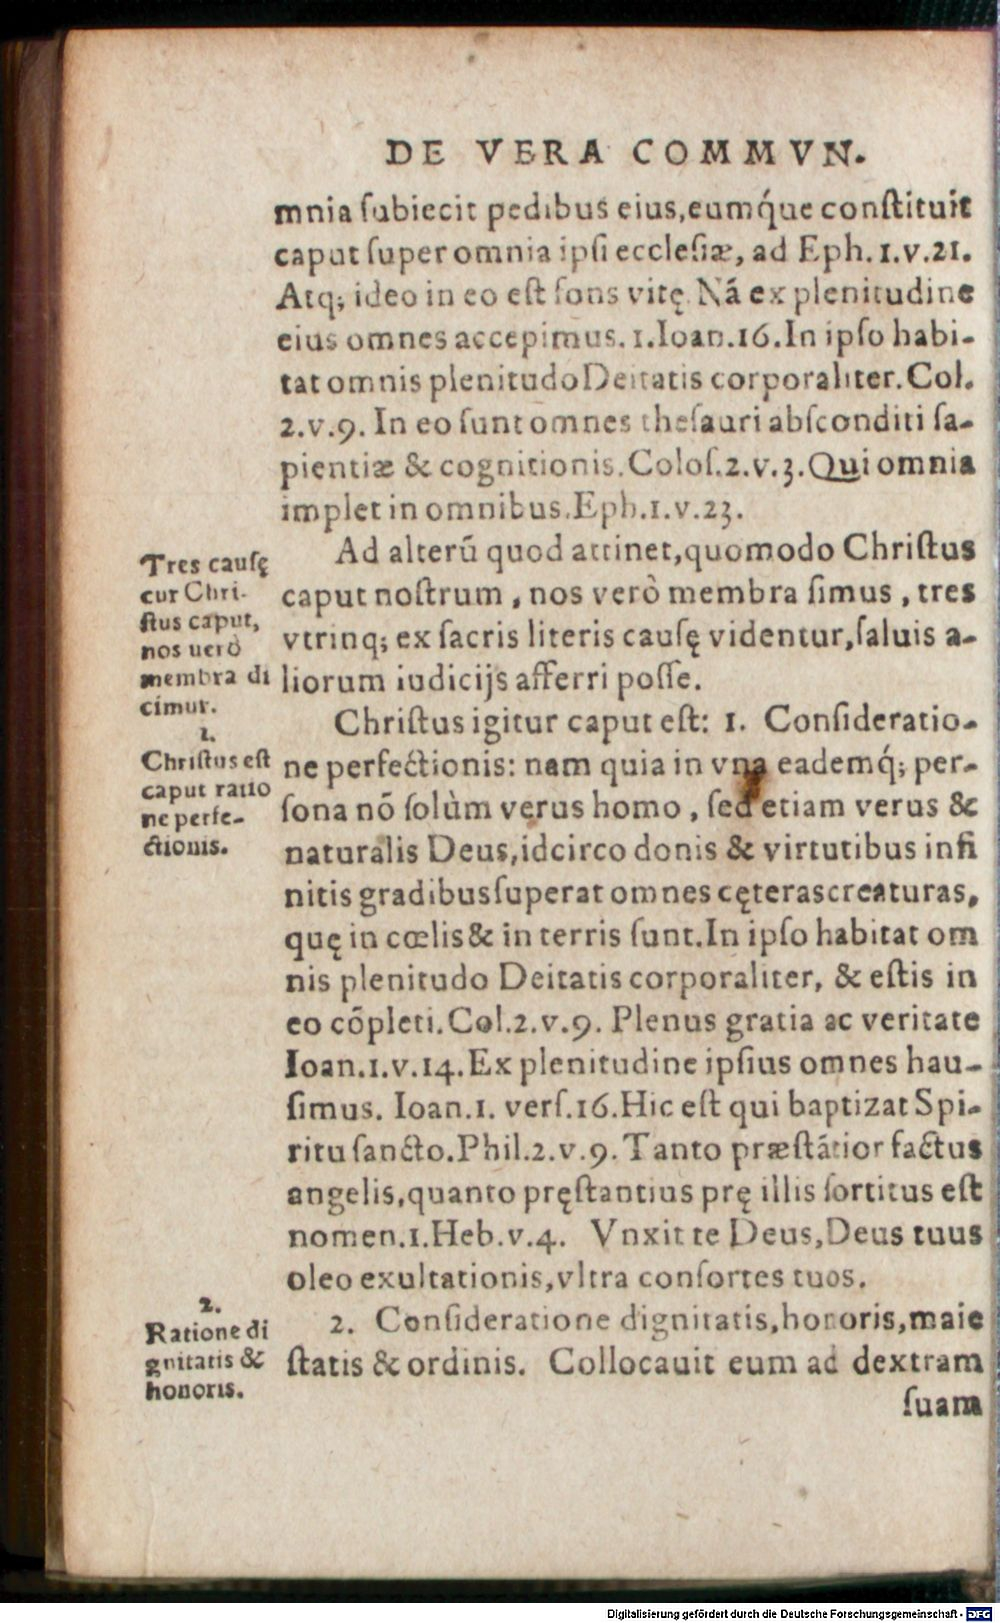 DE VERA COMMVN.
mnia ſubiecit pedibus eius,eumq́ue conſtituit
caput ſuper omnia ipſi eccleſiæ, ad Eph.1.v.21.
Atq; ideo in eo eſt fons vitę. Nā ex plenitudine
eius omnes accepimus.1.Ioan.16.In ipſo habi-
tat omnis plenitudo Deitatis corporaliter.Col.
2.v.9. In eo ſunt omnes theſauri abſconditi ſa-
pientiæ & cognitionis.Coloſ.2.v.3.Qui omnia
implet in omnibus.Eph.1.v.23.
Ad alterū quod attinet,quomodo Chriſtus
caput noſtrum, nos verò membra ſimus, tres
vtrinq; ex ſacris literis cauſę videntur,ſaluis a-
liorum iudicijs afferri poſſe.
Tres cauſę
cur Chri-
ſtus caput,
nos uerò
membra di
cimur.
Chriſtus igitur caput eſt: 1. Conſideratio-
ne perfectionis: nam quia in vna eademq́; per-
ſona nō ſolùm verus homo, ſed etiam verus &
naturalis Deus,idcirco donis & virtutibus infi
nitis gradibus ſuperat omnes cęteras creaturas,
quę in cœlis & in terris ſunt.In ipſo habitat om
nis plenitudo Deitatis corporaliter, & eſtis in
eo cōpleti.Col.2.v.9. Plenus gratia ac veritate
Ioan.1.v.14.Ex plenitudine ipſius omnes hau-
ſimus. Ioan.1. verſ.16.Hic eſt qui baptizat Spi-
ritu ſancto.Phil.2.v.9.Tanto præſtātior factus
angelis,quanto pręſtantius prę illis ſortitus eſt
nomen.1.Heb.v.4. Vnxit te Deus,Deus tuus
oleo exultationis,vltra conſortes tuos.
1.
Chriſtus eſt
caput ratio
ne perfe-
ctionis.
2. Conſideratione dignitatis,honoris,maie
ſtatis & ordinis. Collocauit eum ad dextram
ſuam
2.
Ratione di
gnitatis &
honoris.
Digitalisierung gefördert durch die Deutsche Forschungsgemeinschaft - DFG